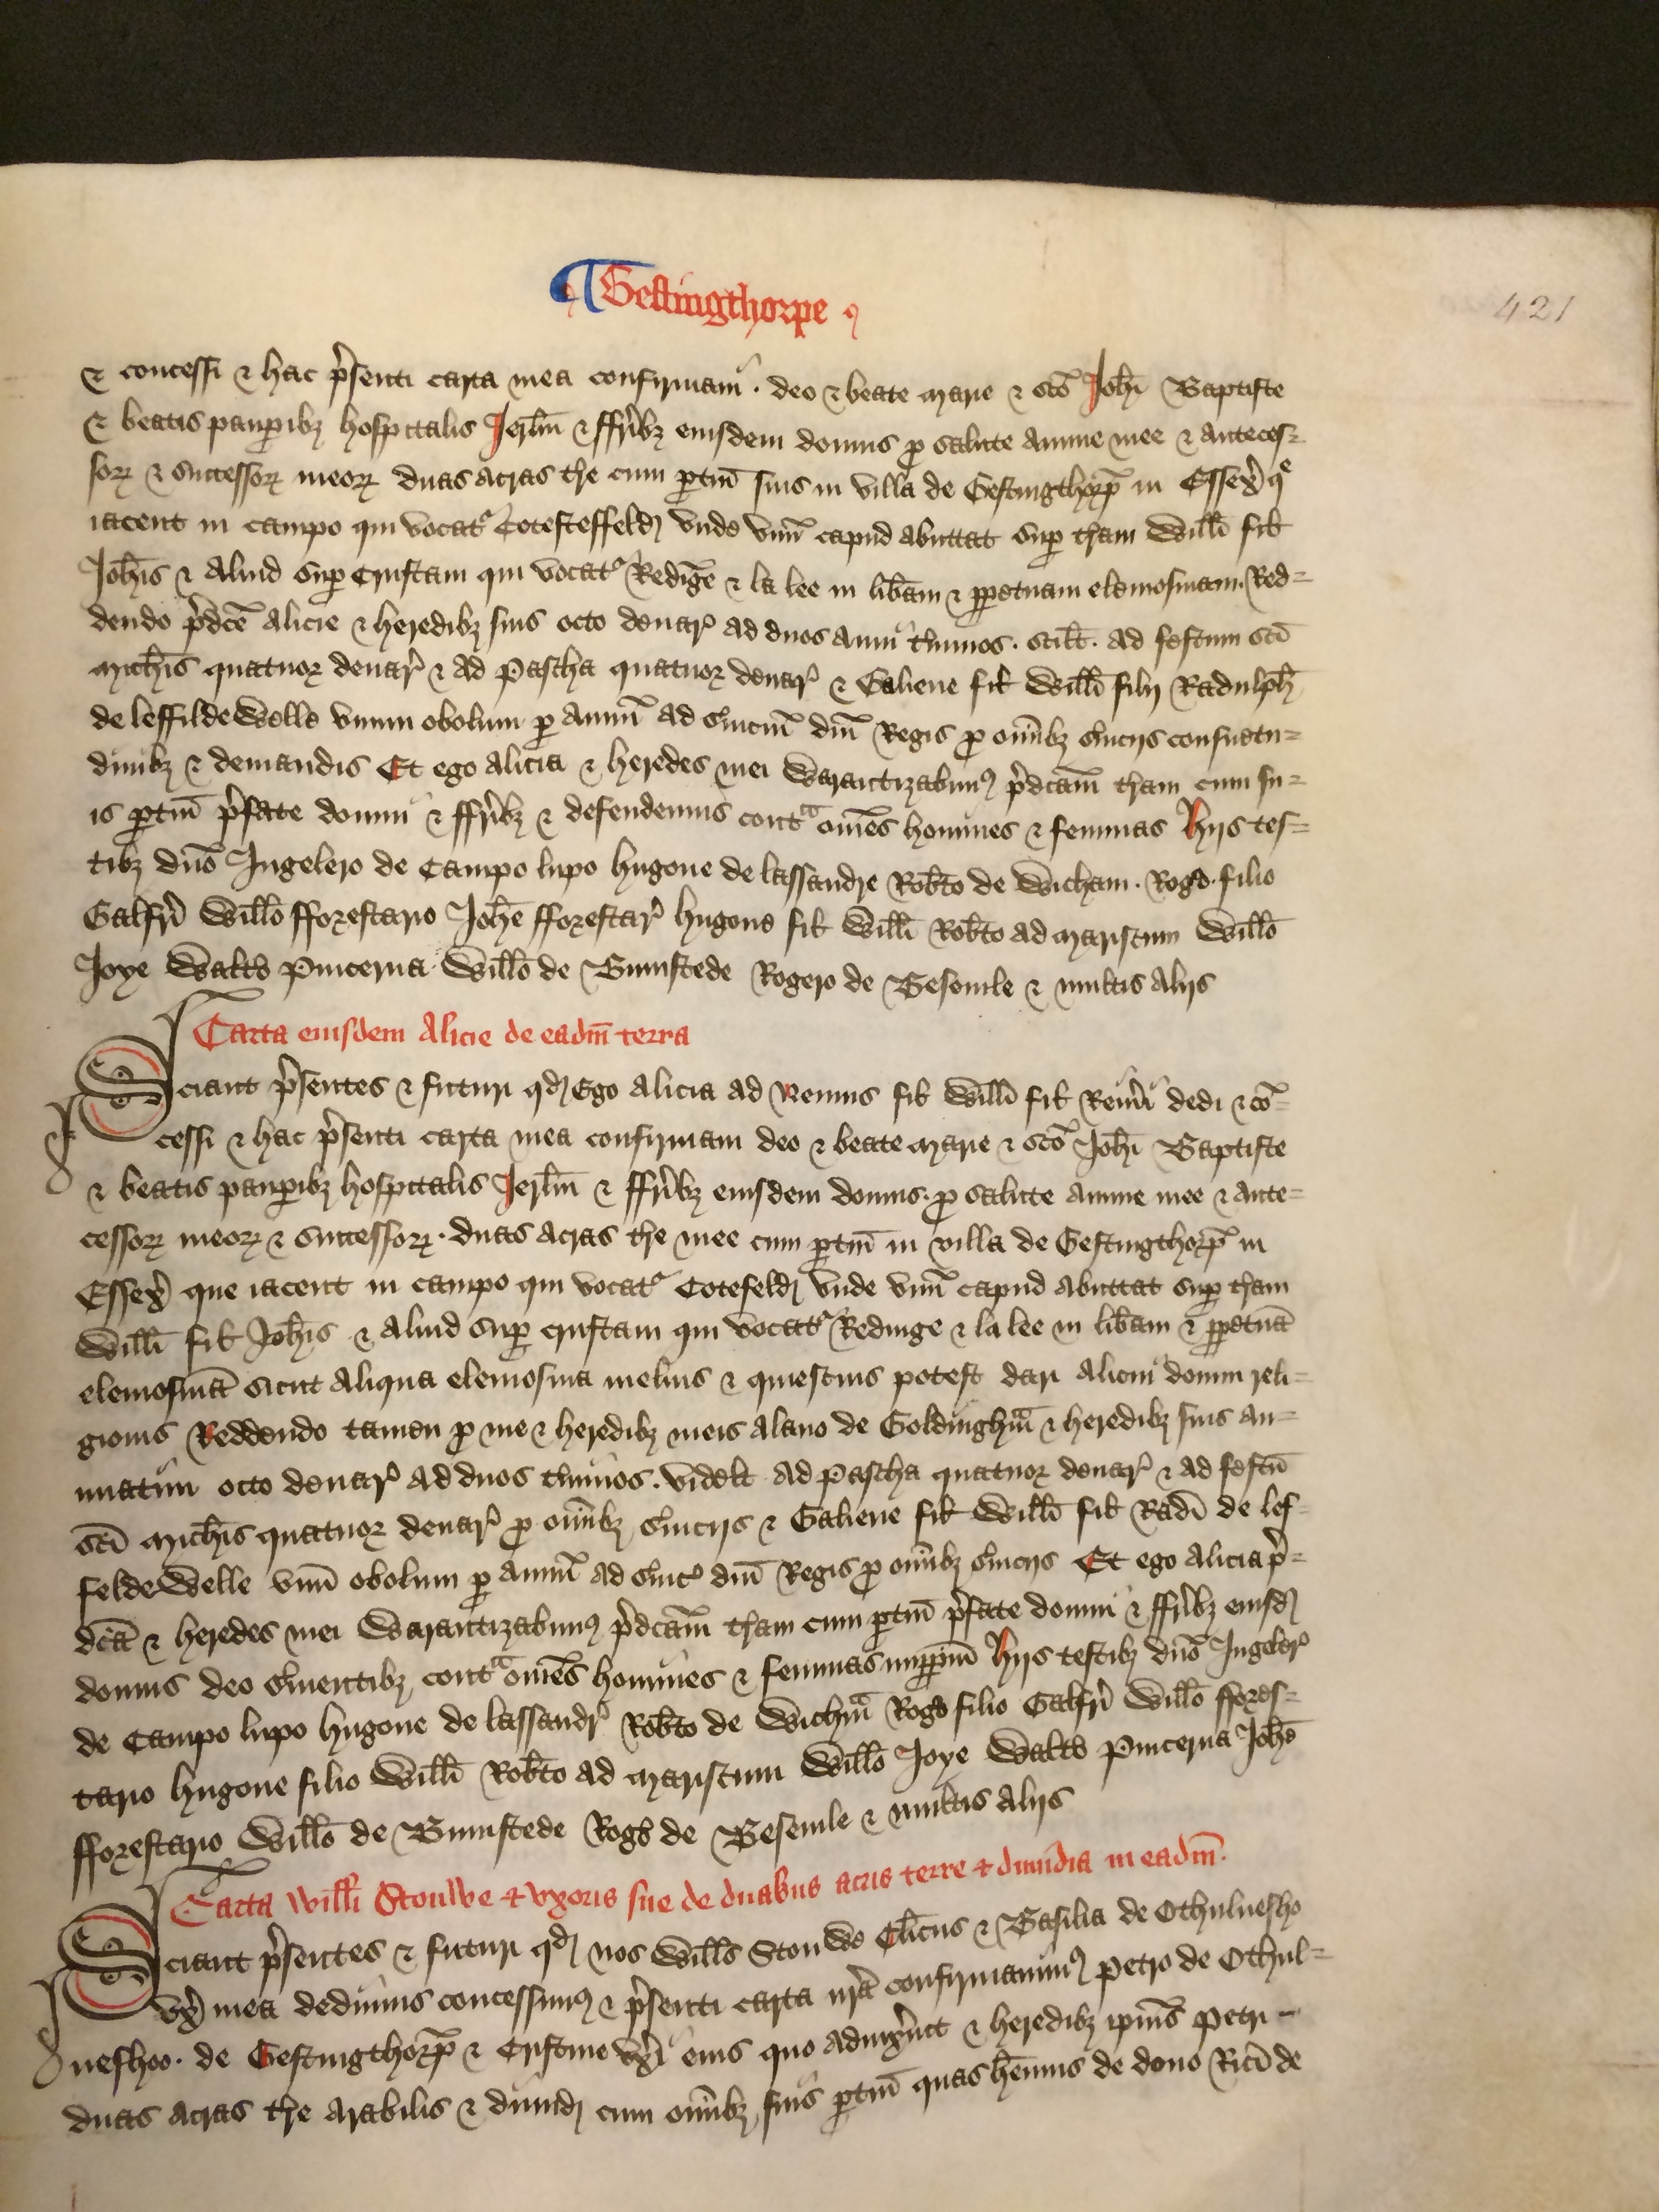 ¶ Gestingthorpe
421
& concessi & hac p'senti carta mea confirmaui . deo & beate marie & sc̄o Joh̄i Baptiste
& beatis paup̱ibȝ hospitalis Jerl̄m & ffr̄ibȝ eiusdem domus p̱ salute anime mee & anteces=
soꝝ & successoꝝ meoꝝ duas acras t're cum p̱tin̄ suis in villa de Gestingthorp̄ in Essex' qe
iacent in campo qui vocat' Cotesteffeld vnde vnū capud abuttat sup̱ t'ram Will̄i fil̄
Joh̄is & aliud sup̱ Cruftam qui vocat' Redinge & la lee in lib̄am & p̱petuam elemosinam. Red=
dendo p'dc̄e Alicie & heredibȝ suis octo denar' ad duos anni t'minos . scil̄t . ad festum sc̄i
mich̄is quatuoꝛ denar' & ad Pascha quatuoꝛ denar' & Galiene fil̄ Will̄i filij Radulph̄
de leffildewelle vnum obolum p̱ annū ad s'uiciū dn̄i Regis p̱ om̄ibȝ s'uicijs consuetu=
dinibȝ & demandis Et ego Alicia & heredes mei Warantizabimꝰ p'dcam̄ t'ram cum su=
is p̱tin̄ p'fate domui & ffr̄ibȝ & defendemus contra om̄es homines & feminas hijs tes=
tibȝ dn̄o Ingelero de Campo lupo hugone de lassandre Rob̄to de Wicham . Rogo . filio
Galfr̄i Will̄o fforestario Joh̄e fforestar' hugone fil̄ Will̄i Rob̄to ad mariscum Will̄o
Joye Walt'o Pincerna Will̄o de Bumstede Rogero de Beseuile & multis alijs
Carta eiusdem Alicie de eadm̄ terra
Sciant p'sentes & futuri qd Ego Alicia ad Renius fil̄ Will̄i fil̄ Rem̄i dedi & cō=
cessi & hac p'senti carta mea confirmaui deo & beate marie & sc̄o Joh̄i Baptiste
& beatis paup̱ibȝ hospitalis Jerl̄m & ffr̄ibȝ eiusdem domus . p̱ salute anime mee & ante=
cessoꝝ meoꝝ & successoꝝ . duas acras t're mee cum p̱tin̄ in villa de Gestingthorp̄ in
Essex' que iacent in campo qui vocat' Cotefeld vnde vnū capud abuttat sup̱ t'ram
Will̄i fil̄ Joh̄is & aliud sup̱ cruftam qui vocat' Redinge & la lee in lib̄am & p̱petuā
elemosinā sicut aliqua elemosina melius & quiescius potest dari alicui domui reli=
gionis Reddendo tamen p̱ me & heredibȝ meis Alano de Goldinghm̄ & heredibȝ suis an=
nuatim octo denar' ad duos t'minos . videlt ad Pascha quatuoꝛ denar' & ad festū
sc̄i mich̄is quatuoꝛ denar' p̱ om̄ibȝ s'uicijs & Galiene fil̄ Will̄i fil̄ Rad̄i de lef=
feldewelle vnū obolum p̱ annū ad s'uic' dn̄i Regis p̱ om̄ibȝ s'uicijs Et ego Alicia p'=
dc̄a & heredes mei Warantizabimꝰ p'dcam̄ t'ram cum p̱tin̄ p'fate domui & ffr̄ibȝ eiusd
domus deo s'uientibȝ contra om̄es homines & feminas imp̱pm̄ hijs testibȝ dn̄o Ingeler'
de Campo lupo hugone de lassandr' Rob̄to de Wichm̄ Rogo filio Galfr̄i Will̄o ffores=
tario hugone filio Will̄i Rob̄to ad mariscum Will̄o Joye Walt'o Pincerna Joh̄e
fforestario Will̄o de Bumstede Rogo de Beseuile & multis alijs
Carta Willi Stouwe & vxoris sue de duabus acris terre & dimidia in eadm̄.
Sciant p'sentes & futuri qd nos Will̄s Stouwe Cl̄icus & Basilia de Othuluesho
vx' mea dedimus concessimꝰ & p'senti carta nr̄a confirmauimꝰ Petro de Othul=
ueshoo . de Gestingthorp̄ & Cristine vx'i eius quo aduix'int & heredibȝ ip̄ius Petri
duas acras t're arabilis & dimid cum om̄ibȝ suis p̱tin̄ quas hēmus de dono Ric̄i de